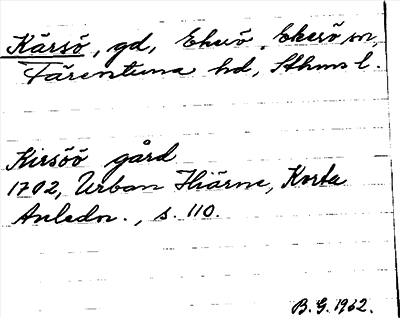 Kärsö, gd, Ekerö, Ekerö sn,
Färentuna hd, Sthms l.
Kirsöö gård
1702, Urban Hiärne, Korta
Anledn., s. 110.
B.G. 1962.